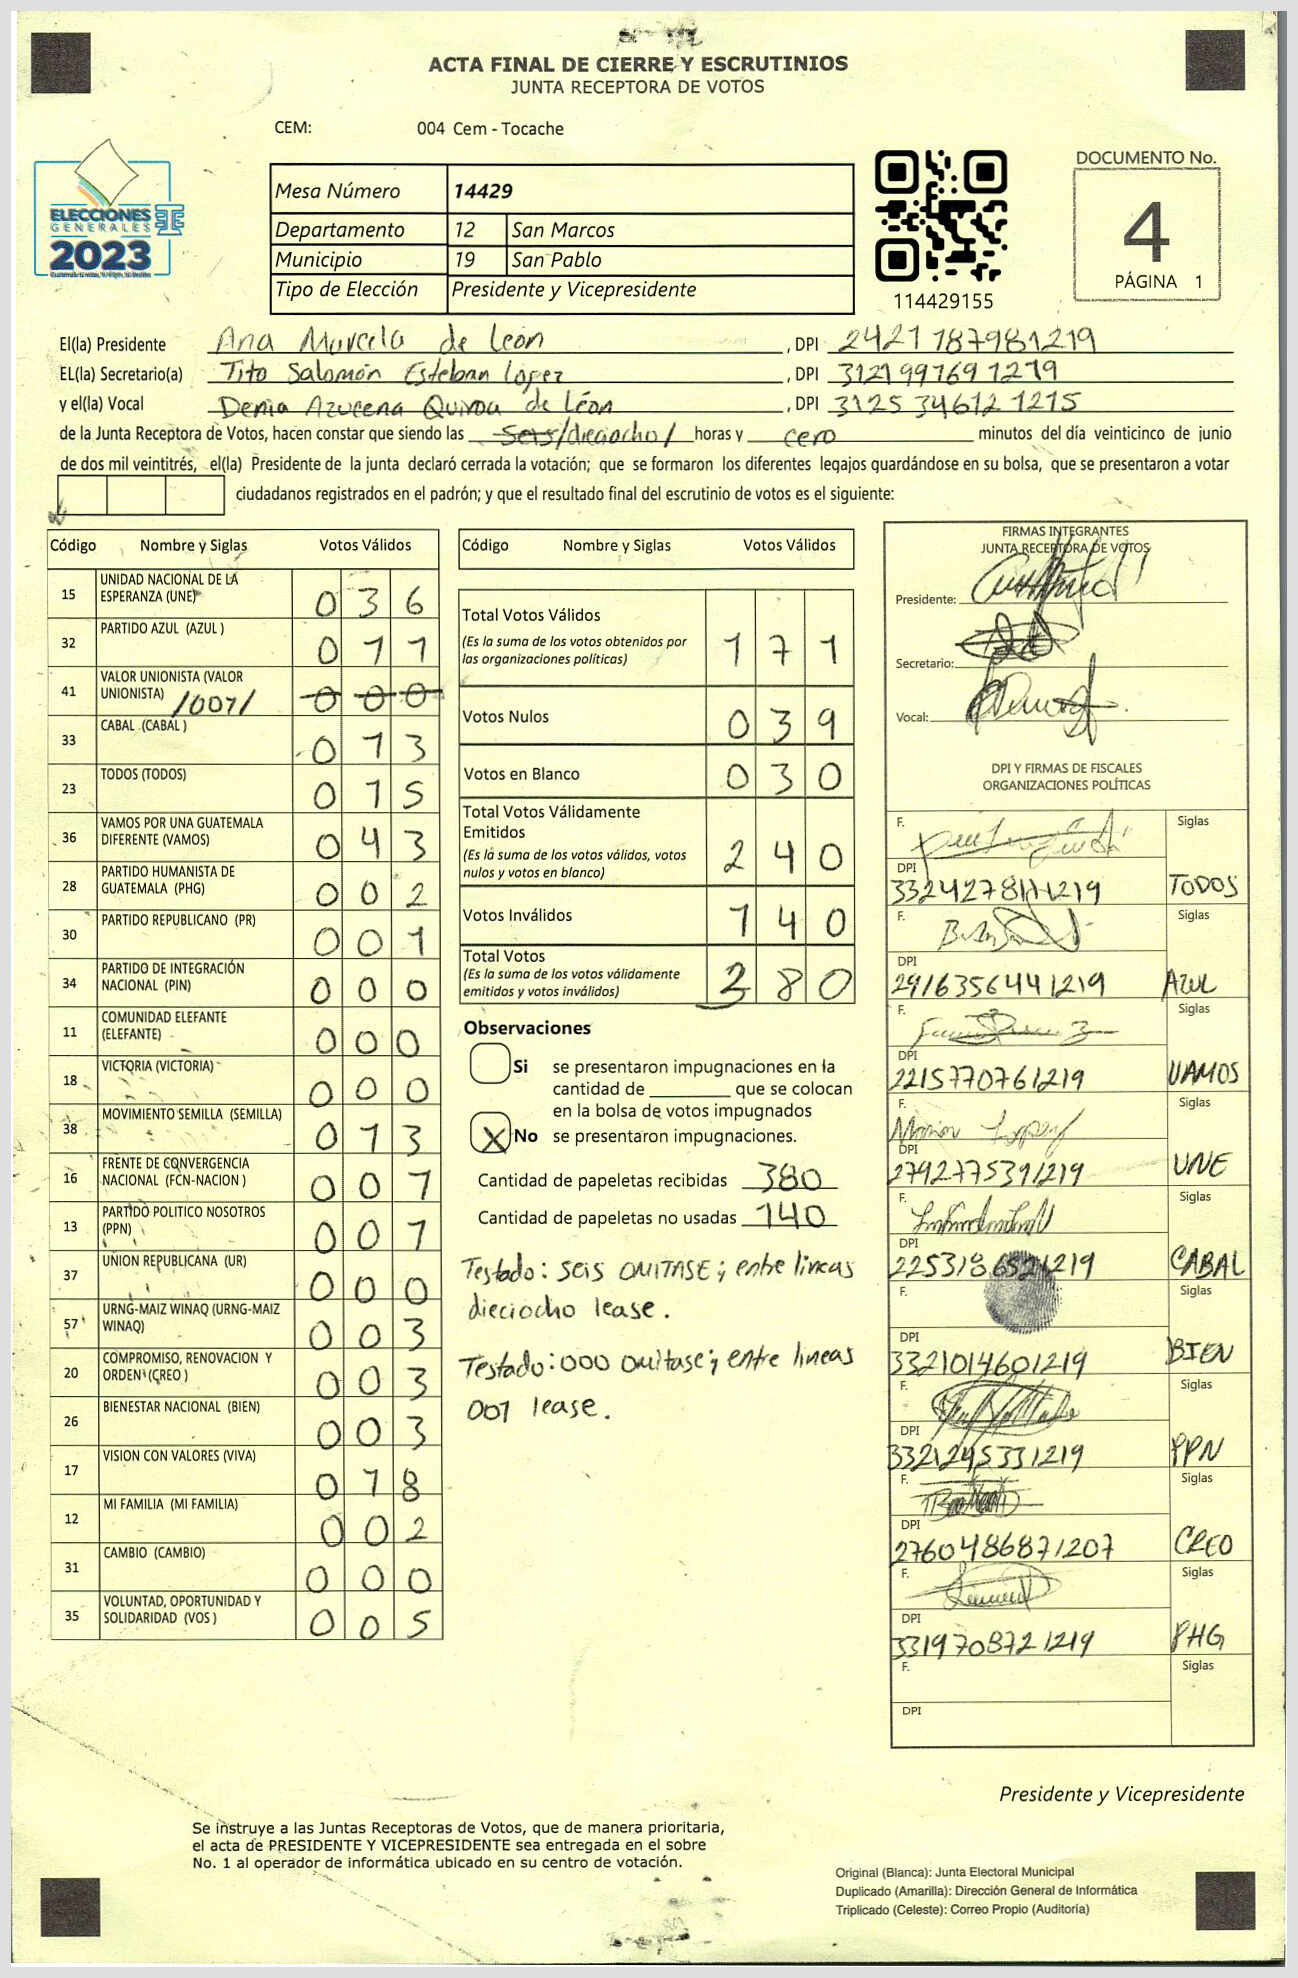 ACTA FINAL DE CIERRE Y ESCRUTINIOS
JUNTA RECEPTORA DE VOTOS
CEM: 004 Cem - Tocache
ELECCIONES
GENERALES
2023
Mesa Número 14429
Departamento 12 San Marcos
Municipio 19 San Pablo
Tipo de Elección Presidente y Vicepresidente
114429155
DOCUMENTO No.
4
PÁGINA 1
El(la) Presidente Ana Marcela de León , DPI 2421 18798 1219
EL(la) Secretario(a) Tito Salomón Esteban López , DPI 3121 99769 1219
y el(la) Vocal Denia Azucena Quiroa de Léon , DPI 3125 34612 1215
de la Junta Receptora de Votos, hacen constar que siendo las seis /dieciocho/ horas y cero minutos del día veinticinco de junio
de dos mil veintitrés, el(la) Presidente de la junta declaró cerrada la votación; que se formaron los diferentes legajos guardándose en su bolsa, que se presentaron a votar
ciudadanos registrados en el padrón; y que el resultado final del escrutinio de votos es el siguiente:
Código Nombre y Siglas Votos Válidos
15 UNIDAD NACIONAL DE LA ESPERANZA (UNE) 0 3 6
32 PARTIDO AZUL (AZUL ) 0 1 1
41 VALOR UNIONISTA (VALOR UNIONISTA) /001/ 0 0 0
33 CABAL (CABAL ) 0 1 3
23 TODOS (TODOS) 0 1 5
36 VAMOS POR UNA GUATEMALA DIFERENTE (VAMOS) 0 4 3
28 PARTIDO HUMANISTA DE GUATEMALA (PHG) 0 0 2
30 PARTIDO REPUBLICANO (PR) 0 0 1
34 PARTIDO DE INTEGRACIÓN NACIONAL (PIN) 0 0 0
11 COMUNIDAD ELEFANTE (ELEFANTE) 0 0 0
18 VICTORIA (VICTORIA) 0 0 0
38 MOVIMIENTO SEMILLA (SEMILLA) 0 1 3
16 FRENTE DE CONVERGENCIA NACIONAL (FCN-NACION ) 0 0 1
13 PARTIDO POLITICO NOSOTROS (PPN) 0 0 1
37 UNION REPUBLICANA (UR) 0 0 0
57 URNG-MAIZ WINAQ (URNG-MAIZ WINAQ) 0 0 3
20 COMPROMISO, RENOVACION Y ORDEN (CREO ) 0 0 3
26 BIENESTAR NACIONAL (BIEN) 0 0 3
17 VISION CON VALORES (VIVA) 0 1 8
12 MI FAMILIA (MI FAMILIA) 0 0 2
31 CAMBIO (CAMBIO) 0 0 0
35 VOLUNTAD, OPORTUNIDAD Y SOLIDARIDAD (VOS ) 0 0 5
Código Nombre y Siglas Votos Válidos
Total Votos Válidos 1 7 1
(Es la suma de los votos obtenidos por
las organizaciones políticas)
Votos Nulos 0 3 9
Votos en Blanco 0 3 0
Total Votos Válidamente
Emitidos 2 4 0
(Es la suma de los votos válidos, votos
nulos y votos en blanco)
Votos Inválidos 1 4 0
Total Votos 3 8 0
(Es la suma de los votos válidamente
emitidos y votos inválidos)
Observaciones
Si se presentaron impugnaciones en la
cantidad de ________ que se colocan
en la bolsa de votos impugnados
X No se presentaron impugnaciones.
Cantidad de papeletas recibidas 380
Cantidad de papeletas no usadas 140
Testado: seis OMITASE; entre lineas
dieciocho lease.
Testado: 000 omitase; entre lineas
001 lease.
FIRMAS INTEGRANTES
JUNTA RECEPTORA DE VOTOS
Presidente:
Secretario:
Vocal:
DPI Y FIRMAS DE FISCALES
ORGANIZACIONES POLÍTICAS
F. Siglas
DPI
3324278111219 TODOS
F. Siglas
DPI
2916356441219 AZUL
F. Siglas
DPI
2215770761219 VAMOS
F. Siglas
DPI
2792775391219 UNE
F. Siglas
DPI
2253186521219 CABAL
F. Siglas
DPI
3321014601219 BIEN
F. Siglas
DPI
3321245331219 PPN
F. Siglas
DPI
2760486871207 CREO
F. Siglas
DPI
3319708721219 PHG
F. Siglas
DPI
Presidente y Vicepresidente
Se instruye a las Juntas Receptoras de Votos, que de manera prioritaria,
el acta de PRESIDENTE Y VICEPRESIDENTE sea entregada en el sobre
No. 1 al operador de informática ubicado en su centro de votación.
Original (Blanca): Junta Electoral Municipal
Duplicado (Amarilla): Dirección General de Informática
Triplicado (Celeste): Correo Propio (Auditoría)